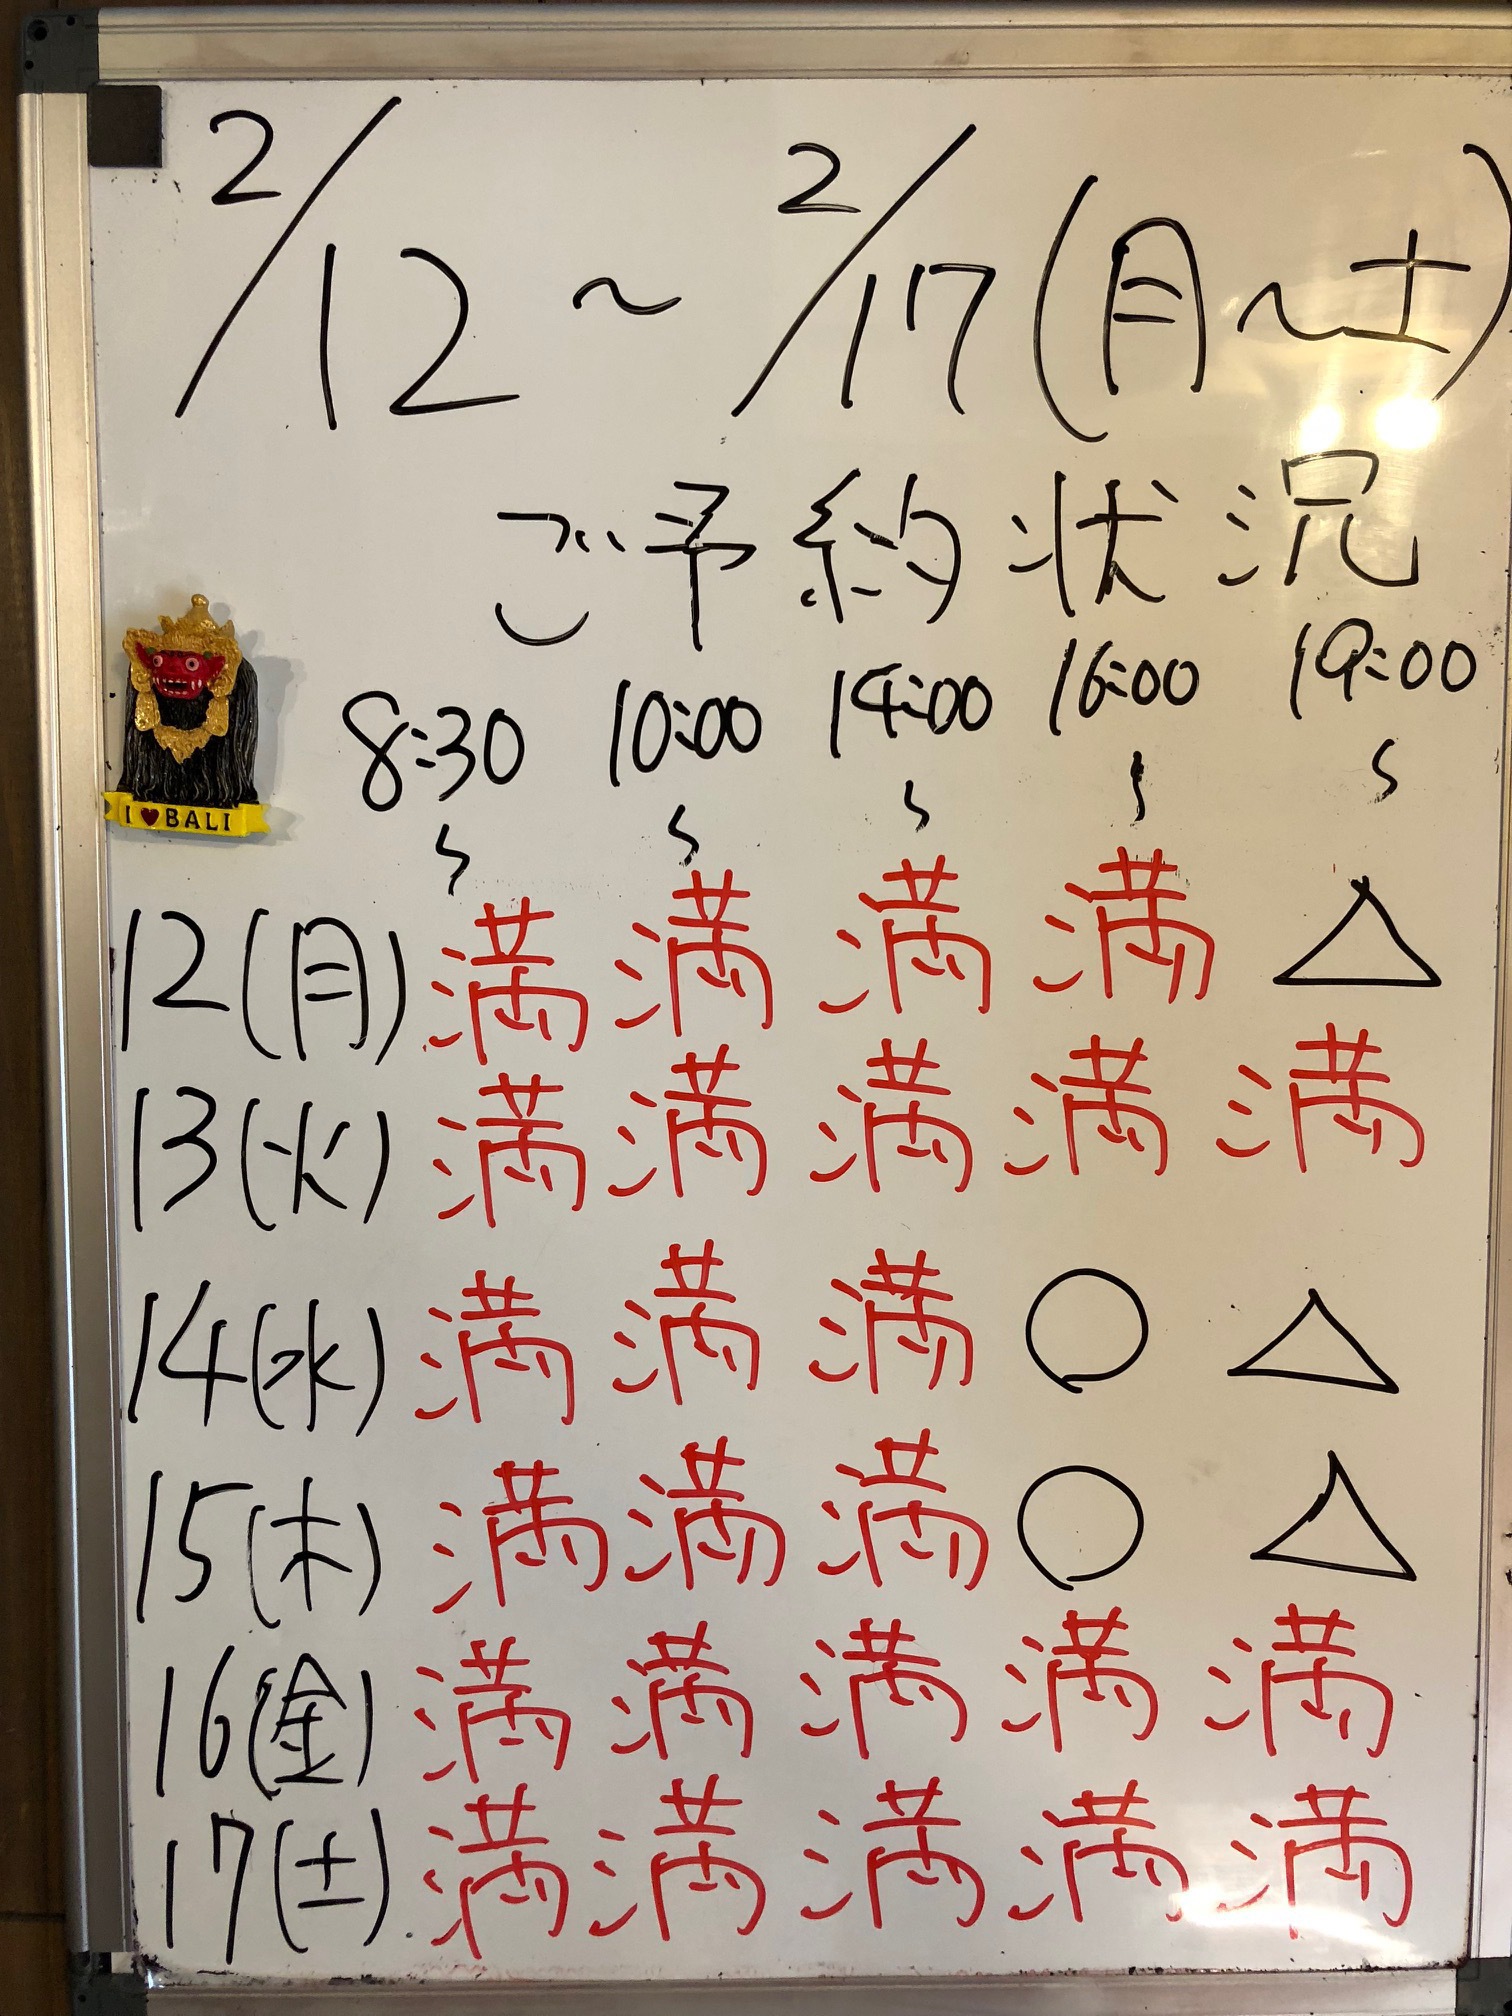 2/12 ~ 2/17 (月~土)
ご予約状況
8:30~ 10:00~ 14:00~ 16:00~ 19:00~
I ♥ BALI
12(月) 満 満 満 満 △
13(火) 満 満 満 満 満
14(水) 満 満 満 ○ △
15(木) 満 満 満 ○ △
16(金) 満 満 満 満 満
17(土) 満 満 満 満 満